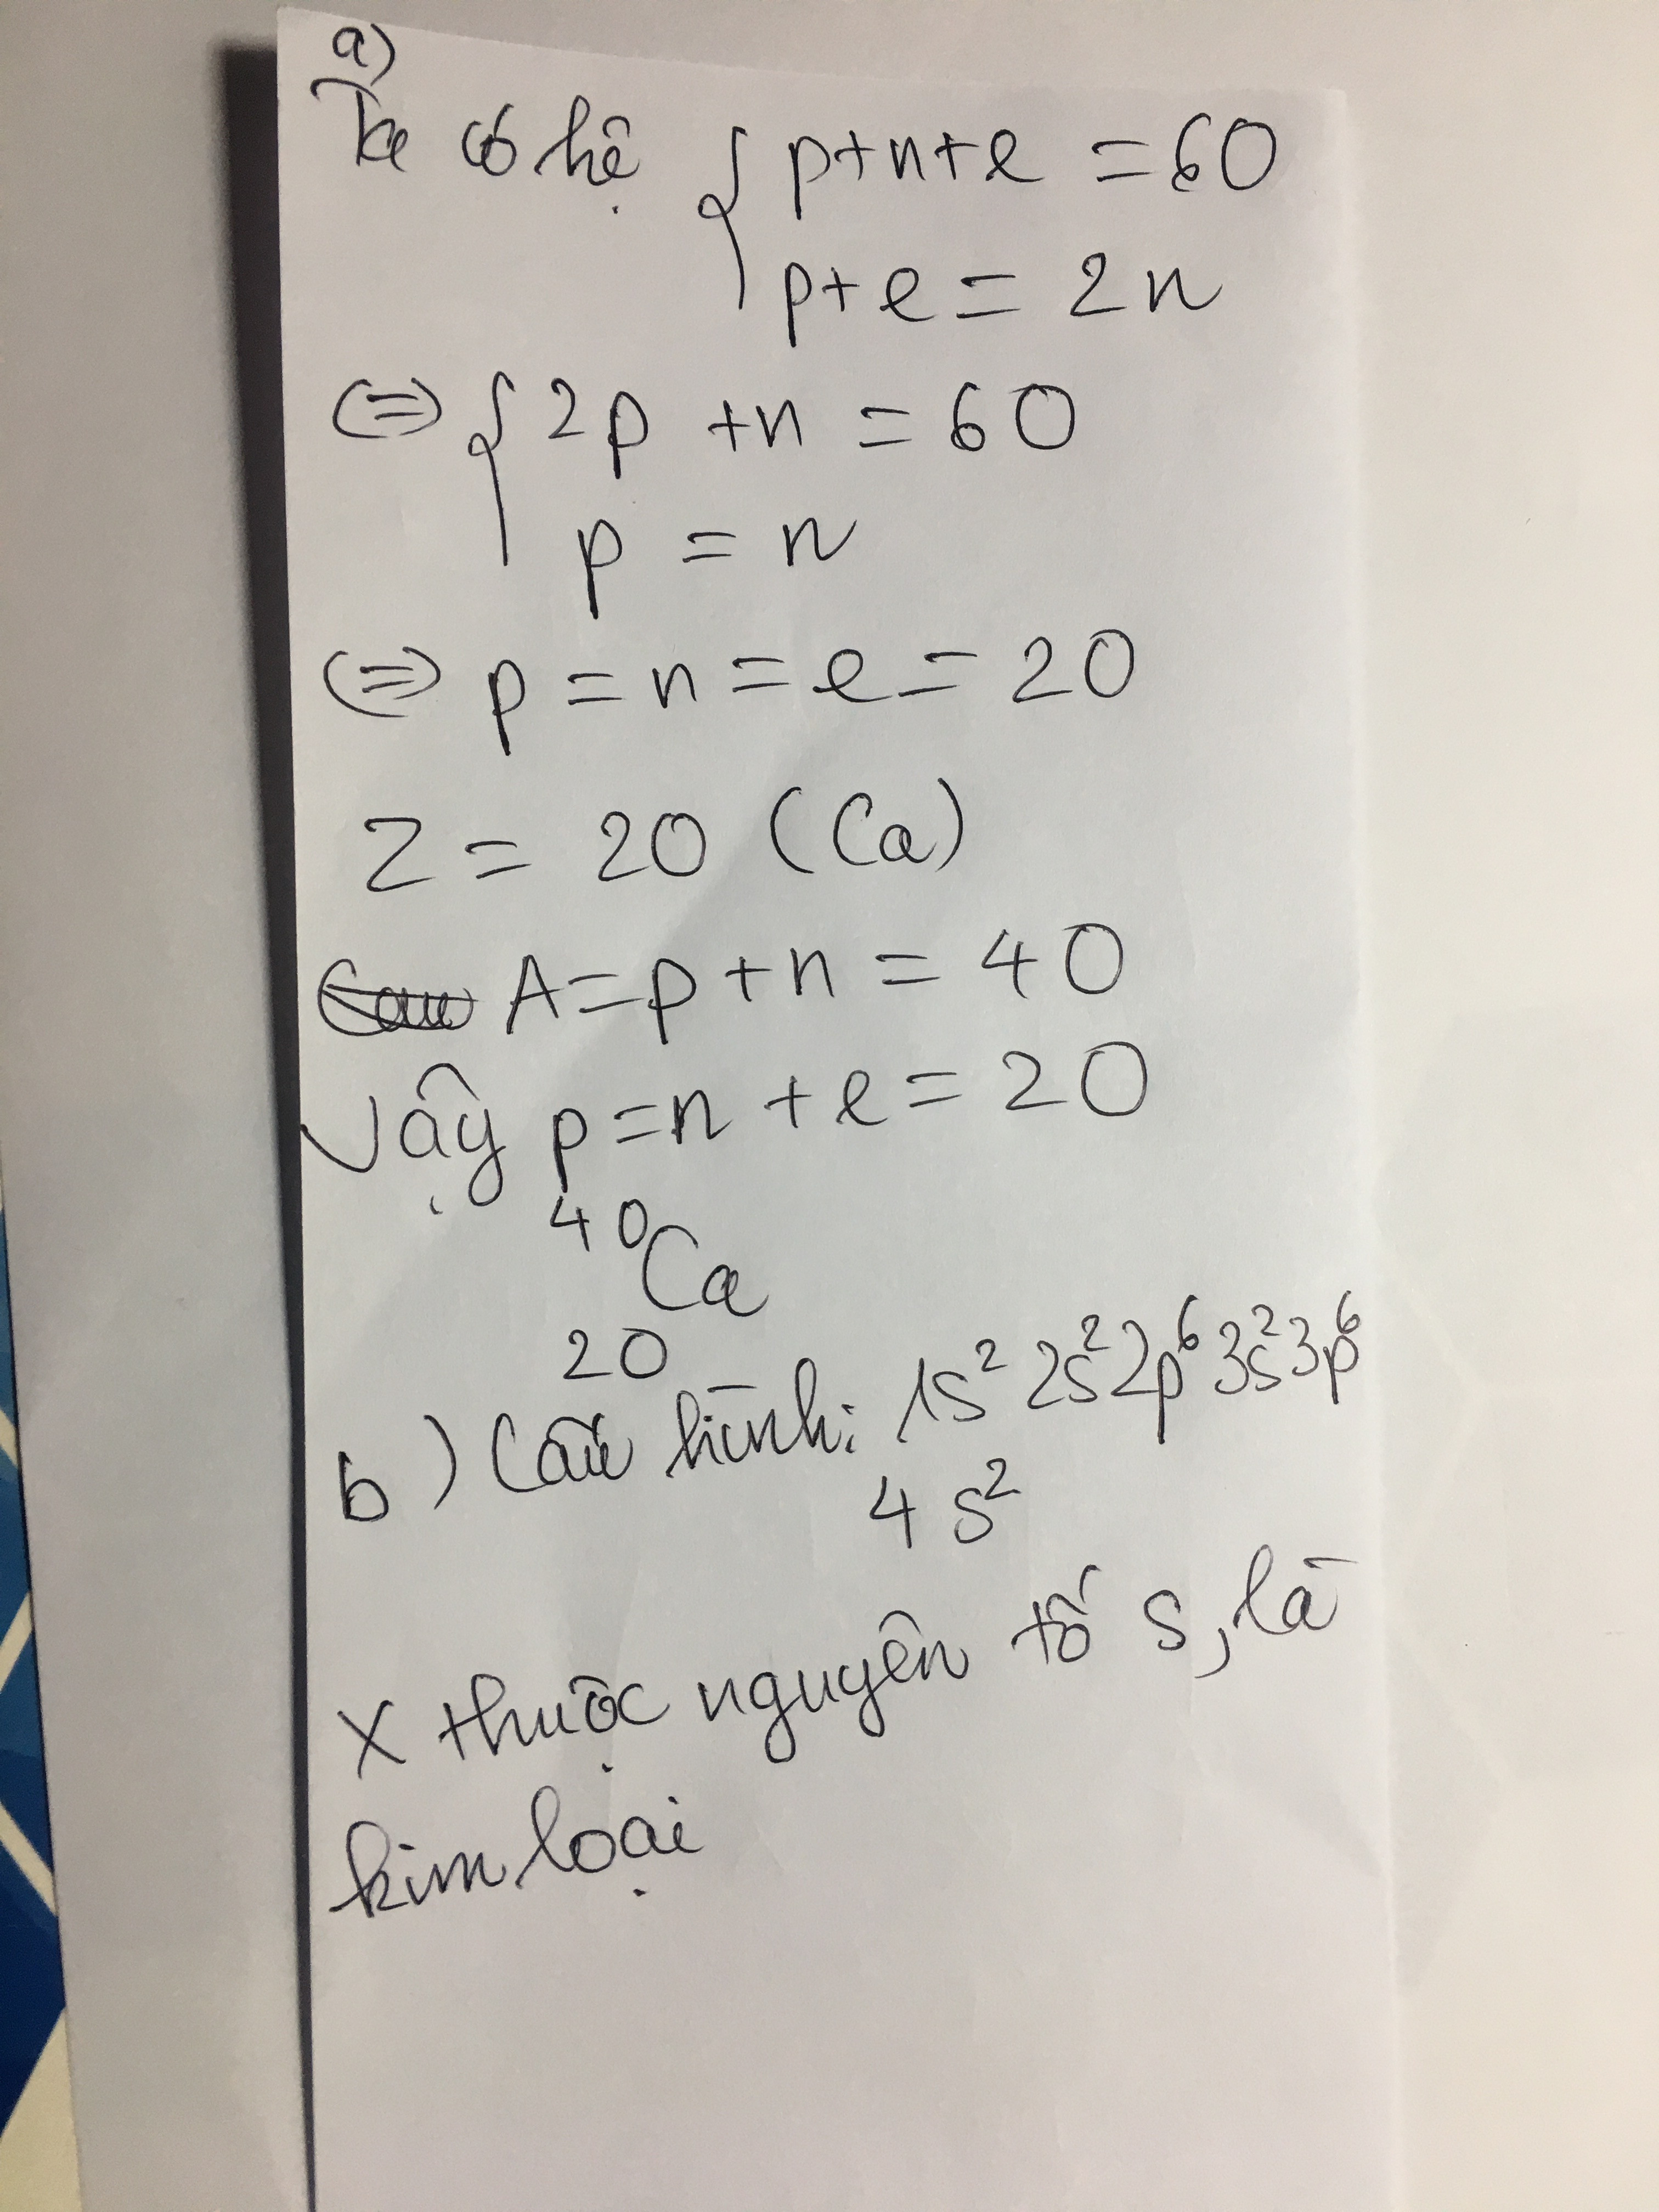 a)
Ta có hệ { p+n+e = 60
p+e = 2n
(=) { 2p + n = 60
p = n
(=) p = n = e = 20
Z = 20 (Ca)
A = p + n = 40
Vậy p = n + e = 20
40
Ca
20
b) Cấu hình: 1s² 2s² 2p⁶ 3s² 3p⁶
4s²
X thuộc nguyên tố s, là
kim loại